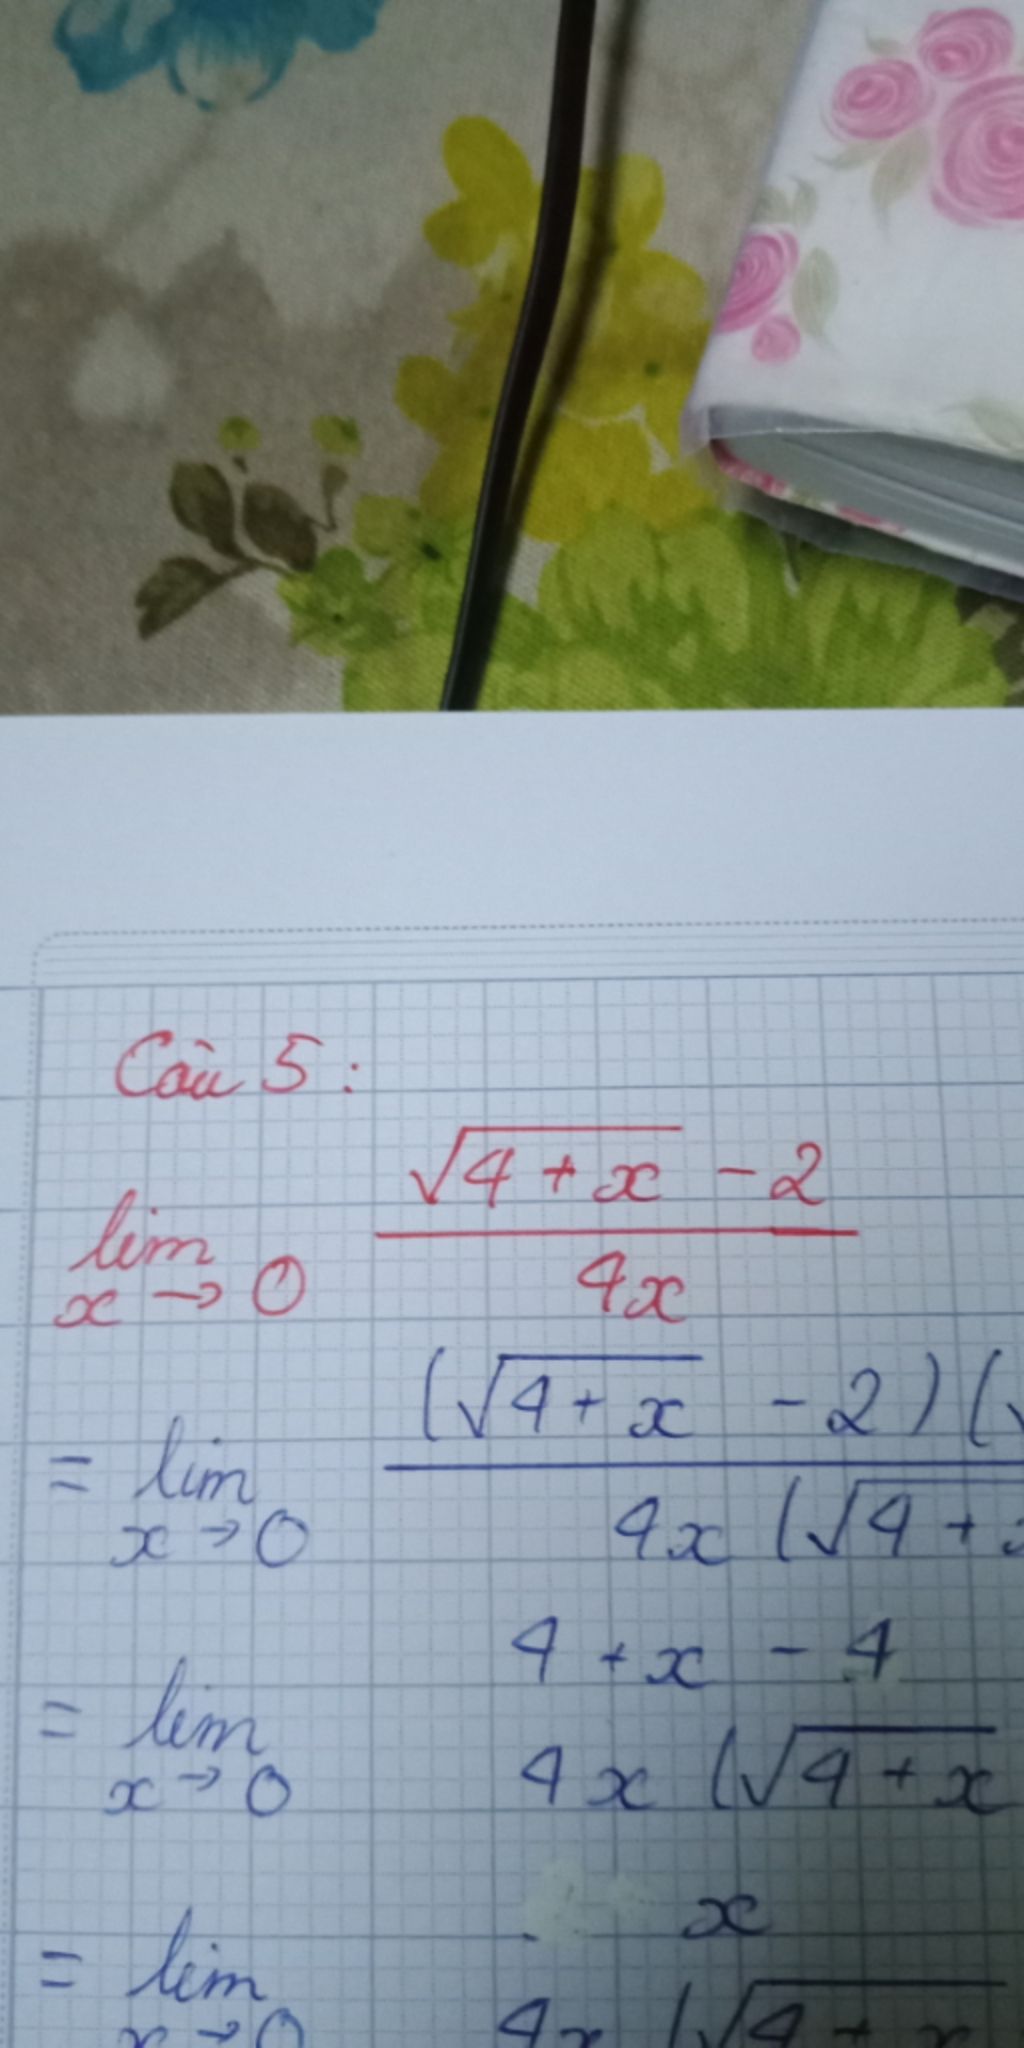 Câu 5:
lim x→0 (√(4 + x) - 2) / 4x
= lim x→0 (√(4 + x) - 2)(√ / 4x (√(4 + x
= lim x→0 4 + x - 4 / 4x (√(4 + x
= lim x→0 x / 4x (√(4 + x